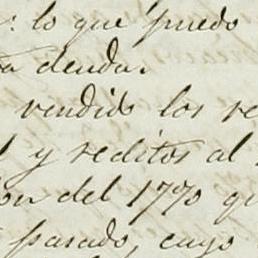 : lo que puedo
deuda.
vendido los re
y reditos al
on del 1770 qu
pasado, cuyo